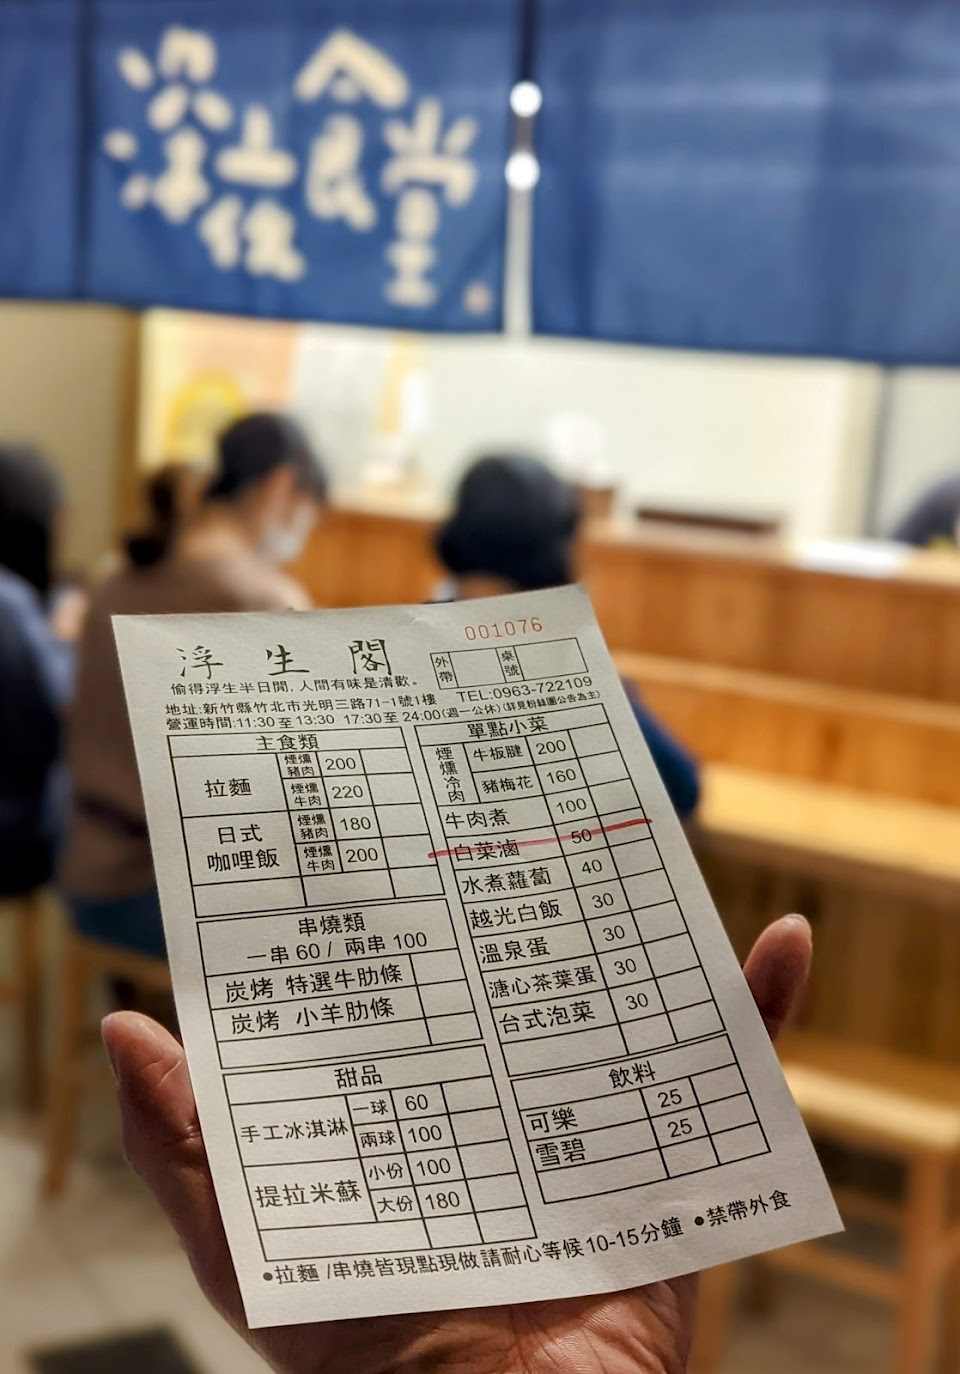 深夜食堂
浮生閣
001076
外帶
桌號
偷得浮生半日閒，人間有味是清歡。
地址:新竹縣竹北市光明三路71-1號1樓
TEL:0963-722109
營運時間:11:30 至 13:30 17:30 至 24:00(週一公休)(詳見粉絲團公告為主)
主食類
拉麵 煙燻豬肉 200
煙燻牛肉 220
日式咖哩飯 煙燻豬肉 180
煙燻牛肉 200
串燒類
一串 60 / 兩串 100
炭烤 特選牛肋條
炭烤 小羊肋條
甜品
手工冰淇淋 一球 60
兩球 100
提拉米蘇 小份 100
大份 180
單點小菜
煙燻冷肉 牛板腱 200
豬梅花 160
牛肉煮 100
白菜滷 50
水煮蘿蔔 40
越光白飯 30
溫泉蛋 30
溏心茶葉蛋 30
台式泡菜 30
飲料
可樂 25
雪碧 25
●拉麵 /串燒皆現點現做請耐心等候10-15分鐘 ●禁帶外食